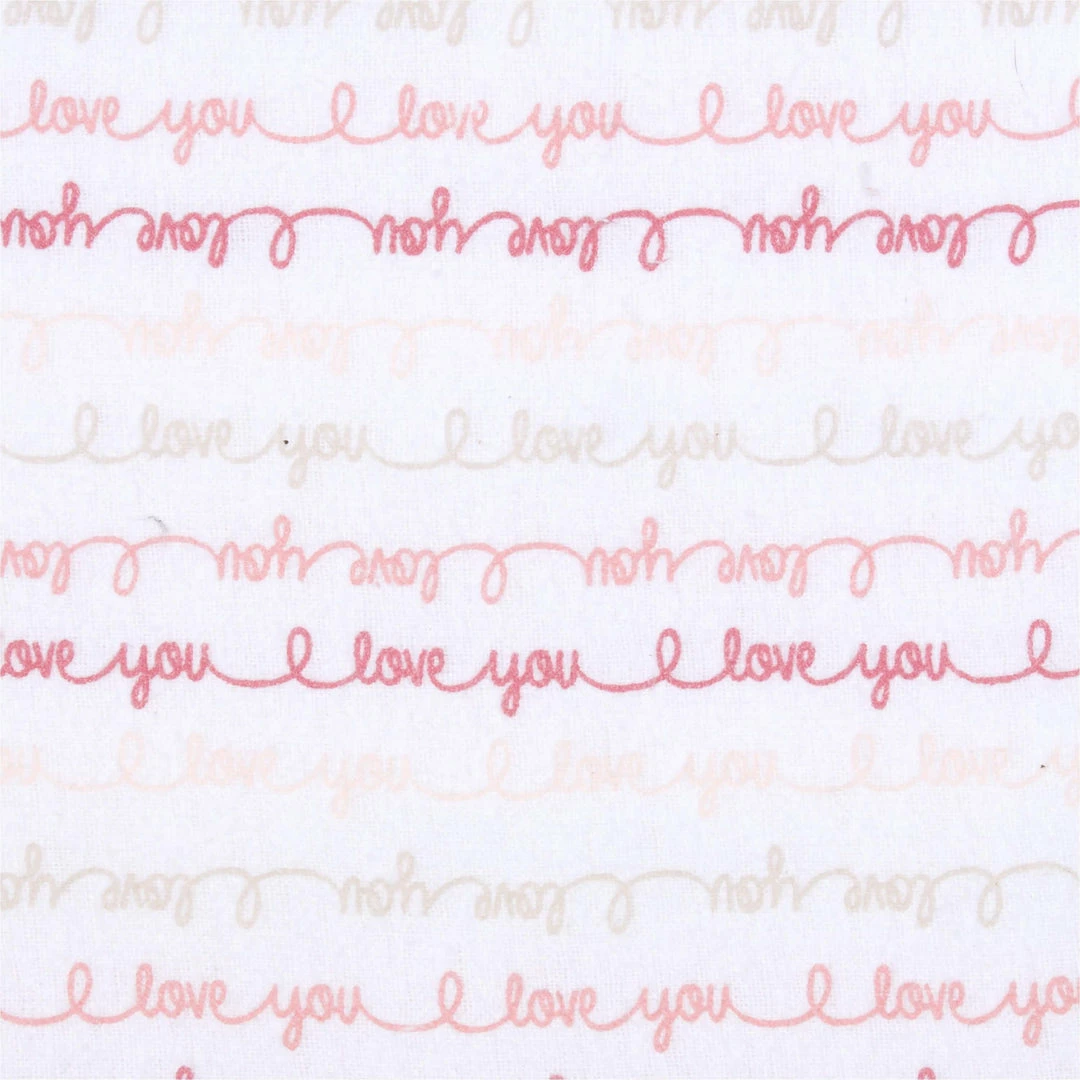 love you I love you I love you I
I love you I love you I love you
love you I love you I love you I
I love you I love you I love yo
you I love you I love you I love
ove you I love you I love you I
u I love you I love you I love y
I love you I love you I love yo
I love you I love you I love yo